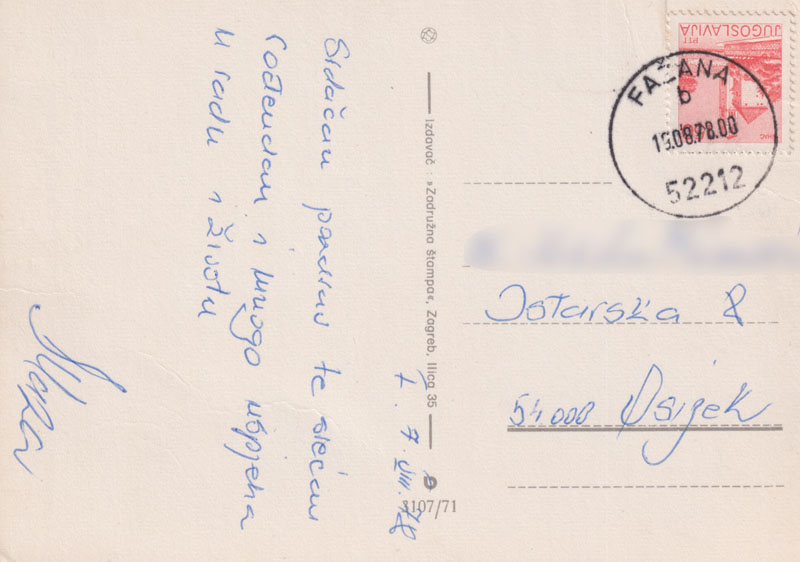 Srdačan pozdrav te srećan
rođendan i mnogo uspjeha
u radu i životu
7. VIII. 78
Izdavač: »Zadružna štampa«, Zagreb, Ilica 35
3107/71
PTT
JUGOSLAVIJA
FAŽANA
b
19.08.78.00
52212
Istarska 8
54000 Osijek